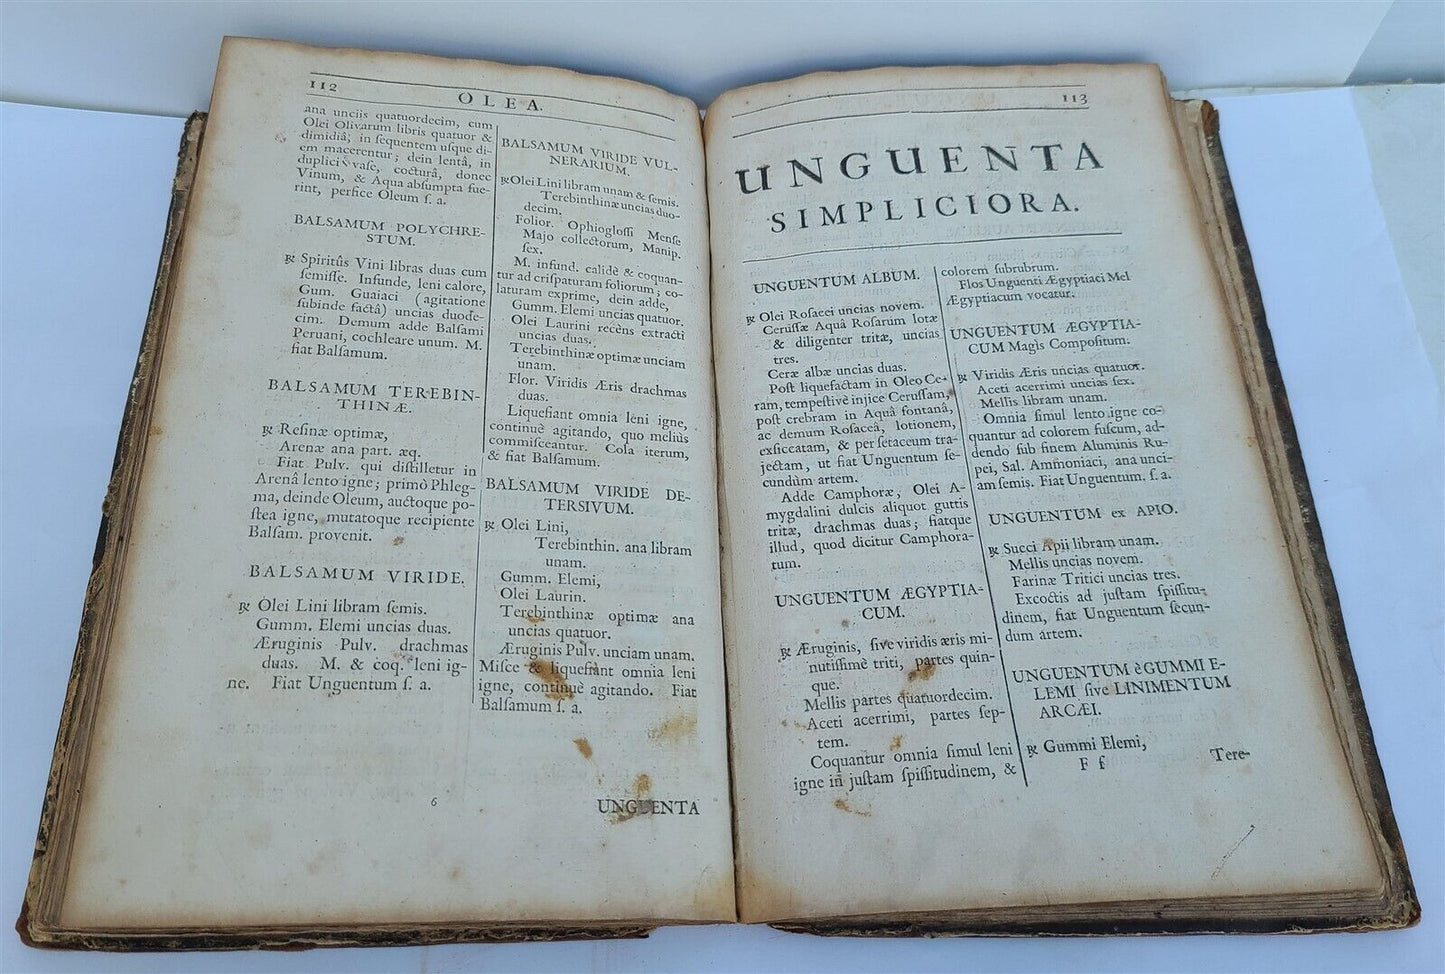 112
OLEA.
ana unciis quatuordecim, cum
Olei Olivarum libris quatuor &
dimidiâ; in ſequentem uſque di-
em macerentur; dein lentâ, in
duplici vaſe, cocturâ, donec
Vinum, & Aqua abſumpta fue-
rint, perfice Oleum ſ. a.
BALSAMUM POLYCHRE-
STUM.
℞ Spiritûs Vini libras duas cum
ſemiſſe. Infunde, leni calore,
Gum. Guaiaci (agitatione
ſubinde factâ) uncias duode-
cim. Demum adde Balſami
Peruani, cochleare unum. M.
fiat Balſamum.
BALSAMUM TEREBIN-
THINÆ.
℞ Reſinæ optimæ,
Arenæ ana part. æq.
Fiat Pulv. qui diſtilletur in
Arenâ lento igne; primò Phleg-
ma, deinde Oleum, auctoque po-
ſtea igne, mutatoque recipiente
Balſam. provenit.
BALSAMUM VIRIDE.
℞ Olei Lini libram ſemis.
Gumm. Elemi uncias duas.
Æruginis Pulv. drachmas
duas. M. & coq. leni ig-
ne. Fiat Unguentum ſ. a.
BALSAMUM VIRIDE VUL-
NERARIUM.
℞ Olei Lini libram unam & ſemis.
Terebinthinæ uncias duo-
decim.
Folior. Ophiogloſſi Menſe
Majo collectorum, Manip.
ſex.
M. infund. calidè & coquan-
tur ad criſpaturam foliorum; co-
laturam exprime, dein adde,
Gumm. Elemi uncias quatuor.
Olei Laurini recèns extracti
uncias duas.
Terebinthinæ optimæ unciam
unam.
Flor. Viridis Æris drachmas
duas.
Liqueſiant omnia leni igne,
continuè agitando, quo meliùs
commiſceantur. Cola iterum,
& fiat Balſamum.
BALSAMUM VIRIDE DE-
TERSIVUM.
℞ Olei Lini,
Terebinthin. ana libram
unam.
Gumm. Elemi,
Olei Laurin.
Terebinthinæ optimæ ana
uncias quatuor.
Æruginis Pulv. unciam unam.
Miſce & liqueſiant omnia leni
igne, continuè agitando. Fiat
Balſamum ſ. a.
6
UNGUENTA
113
UNGUENTA
SIMPLICIORA.
UNGUENTUM ALBUM.
℞ Olei Roſacei uncias novem.
Ceruſſæ Aquâ Roſarum lotæ
& diligenter tritæ, uncias
tres.
Ceræ albæ uncias duas.
Poſt liquefactam in Oleo Ce-
ram, tempeſtivè injice Ceruſſam,
poſt crebram in Aquâ fontanâ,
ac demum Roſaceâ, lotionem,
exſiccatam, & per ſetaceum tra-
jectam, ut fiat Unguentum ſe-
cundùm artem.
Adde Camphoræ, Olei A-
mygdalini dulcis aliquot guttis
tritæ, drachmas duas; fiatque
illud, quod dicitur Camphora-
tum.
UNGUENTUM ÆGYPTIA-
CUM.
℞ Æruginis, ſive viridis æris mi-
nutiſſimè triti, partes quin-
que.
Mellis partes quatuordecim.
Aceti acerrimi, partes ſep-
tem.
Coquantur omnia ſimul leni
igne in juſtam ſpiſſitudinem, &
colorem ſubrubrum.
Flos Unguenti Ægyptiaci Mel
Ægyptiacum vocatur.
UNGUENTUM ÆGYPTIA-
CUM Magìs Compoſitum.
℞ Viridis Æris uncias quatuor.
Aceti acerrimi uncias ſex.
Mellis libram unam.
Omnia ſimul lento igne co-
quantur ad colorem fuſcum, ad-
dendo ſub finem Aluminis Ru-
pei, Sal. Ammoniaci, ana unci-
am ſemis. Fiat Unguentum. ſ. a.
UNGUENTUM ex APIO.
℞ Succi Apii libram unam.
Mellis uncias novem.
Farinæ Tritici uncias tres.
Excoctis ad juſtam ſpiſſitu-
dinem, fiat Unguentum ſecun-
dum artem.
UNGUENTUM è GUMMI E-
LEMI ſive LINIMENTUM
ARCÆI.
℞ Gummi Elemi,
F f
Tere-